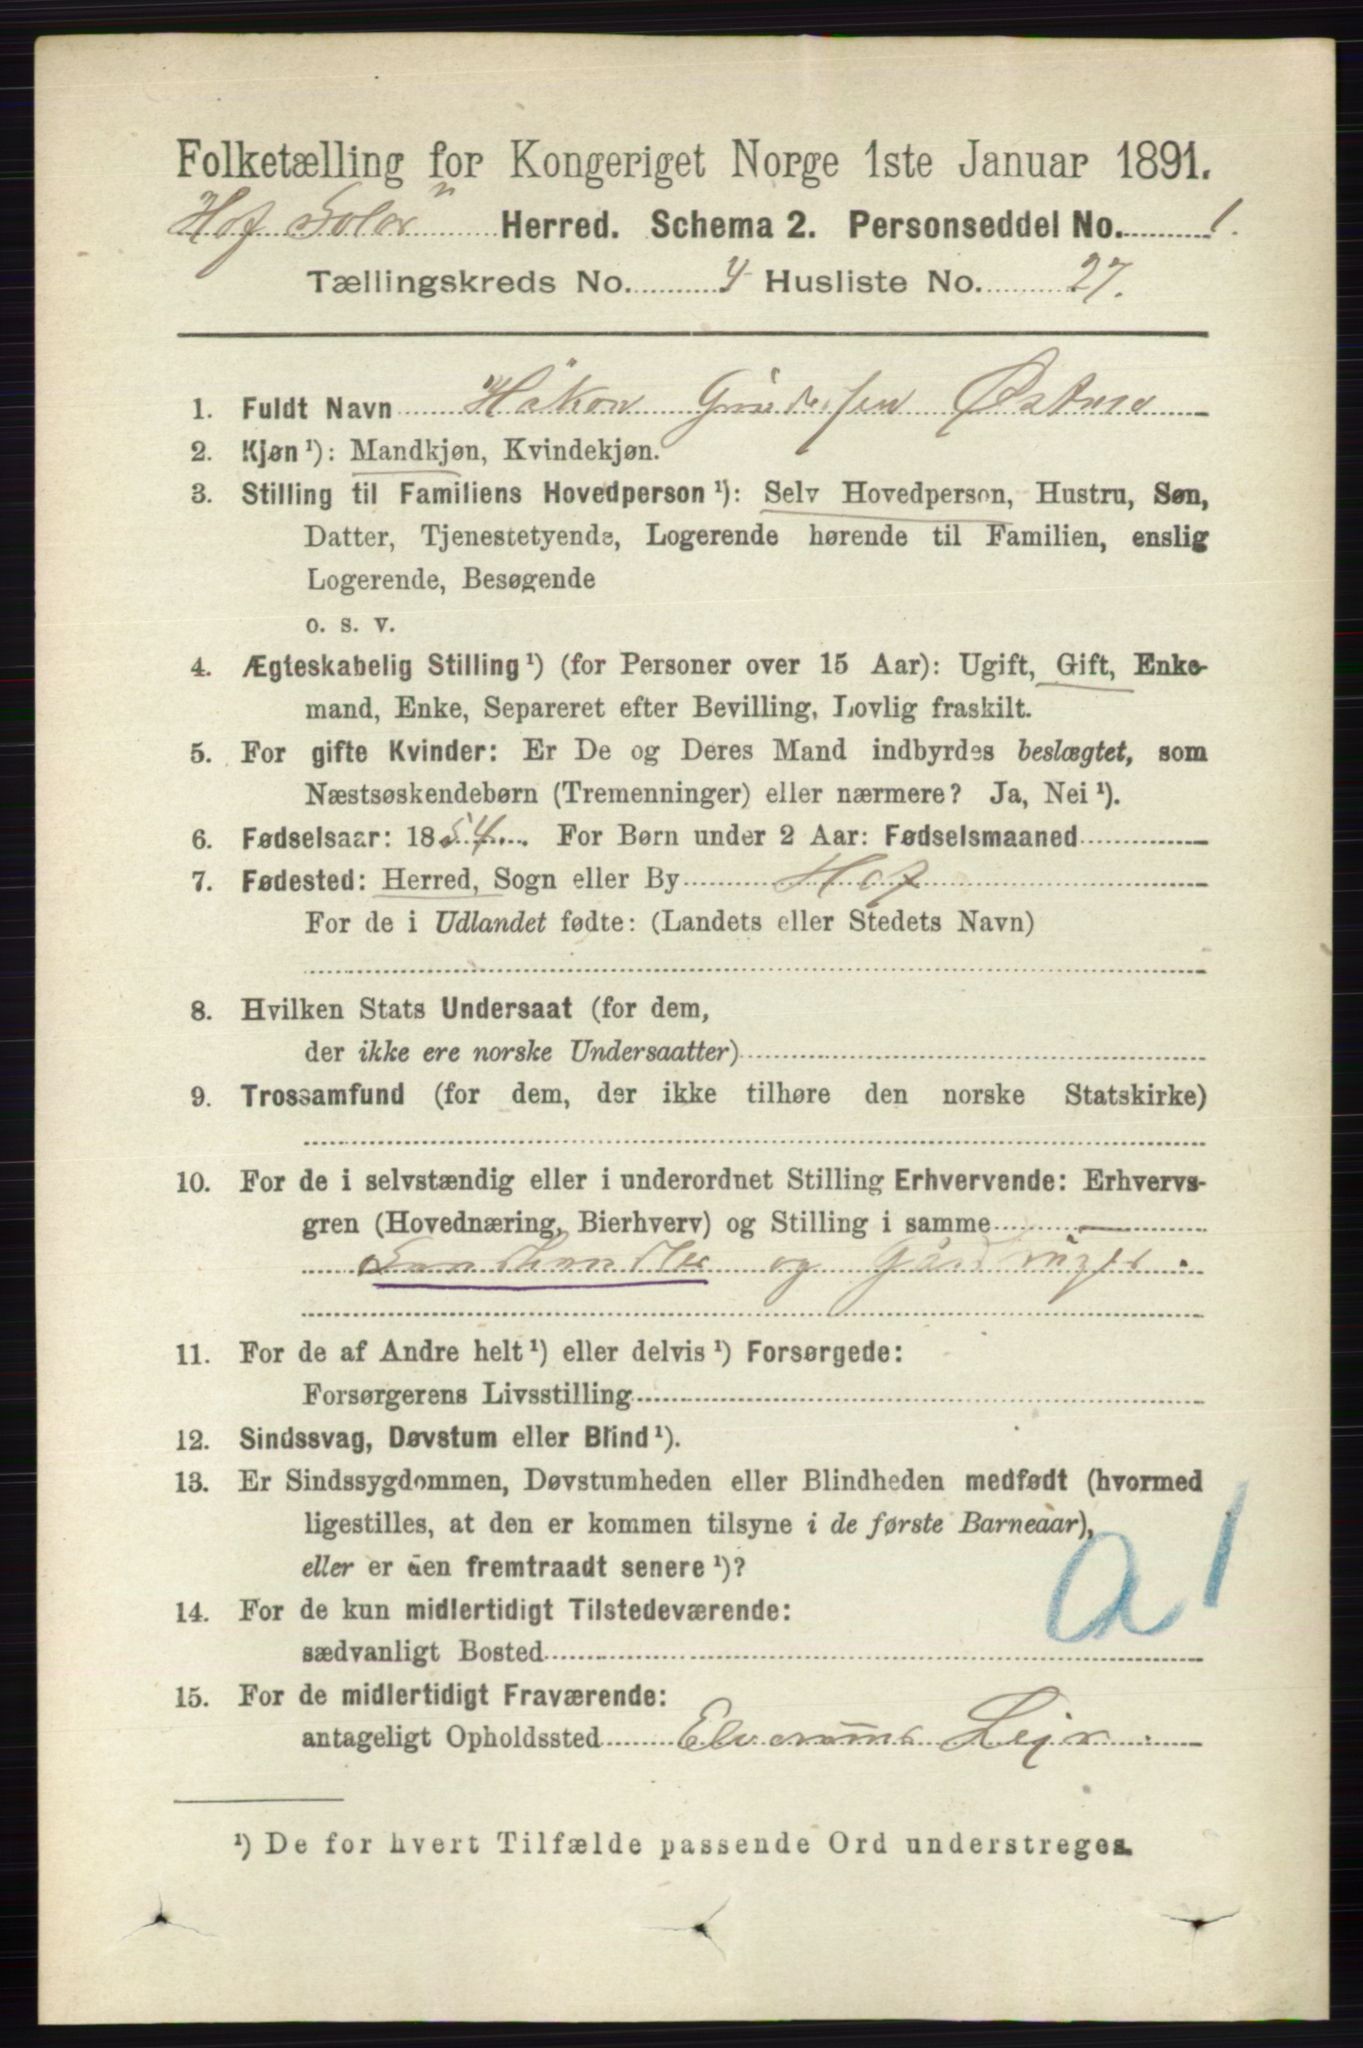 Folketælling for Kongeriget Norge 1ste Januar 1891.
Hof Solør Herred. Schema 2. Personseddel No. 1.
Tællingskreds No. 4 Husliste No. 27.
1. Fuldt Navn Håkon Østmo
2. Kjøn ¹): Mandkjøn, Kvindekjøn.
3. Stilling til Familiens Hovedperson ¹): Selv Hovedperson, Hustru, Søn,
Datter, Tjenestetyende, Logerende hørende til Familien, enslig
Logerende, Besøgende
o. s. v.
4. Ægteskabelig Stilling ¹) (for Personer over 15 Aar): Ugift, Gift, Enke-
mand, Enke, Separeret efter Bevilling, Lovlig fraskilt.
5. For gifte Kvinder: Er De og Deres Mand indbyrdes beslægtet, som
Næstsøskendebørn (Tremenninger) eller nærmere? Ja, Nei ¹).
6. Fødselsaar: 1854. For Børn under 2 Aar: Fødselsmaaned
7. Fødested: Herred, Sogn eller By Hof
For de i Udlandet fødte: (Landets eller Stedets Navn)
8. Hvilken Stats Undersaat (for dem,
der ikke ere norske Undersaatter)
9. Trossamfund (for dem, der ikke tilhøre den norske Statskirke)
10. For de i selvstændig eller i underordnet Stilling Erhvervende: Erhvervs-
gren (Hovednæring, Bierhverv) og Stilling i samme
Landhandler og Gårdbruger.
11. For de af Andre helt ¹) eller delvis ¹) Forsørgede:
Forsørgerens Livsstilling
12. Sindssvag, Døvstum eller Blind ¹).
13. Er Sindssygdommen, Døvstumheden eller Blindheden medfødt (hvormed
ligestilles, at den er kommen tilsyne i de første Barneaar),
eller er den fremtraadt senere ¹)?
a 1
14. For de kun midlertidigt Tilstedeværende:
sædvanligt Bosted
15. For de midlertidigt Fraværende:
antageligt Opholdssted Elverums Lejr.
¹) De for hvert Tilfælde passende Ord understreges.